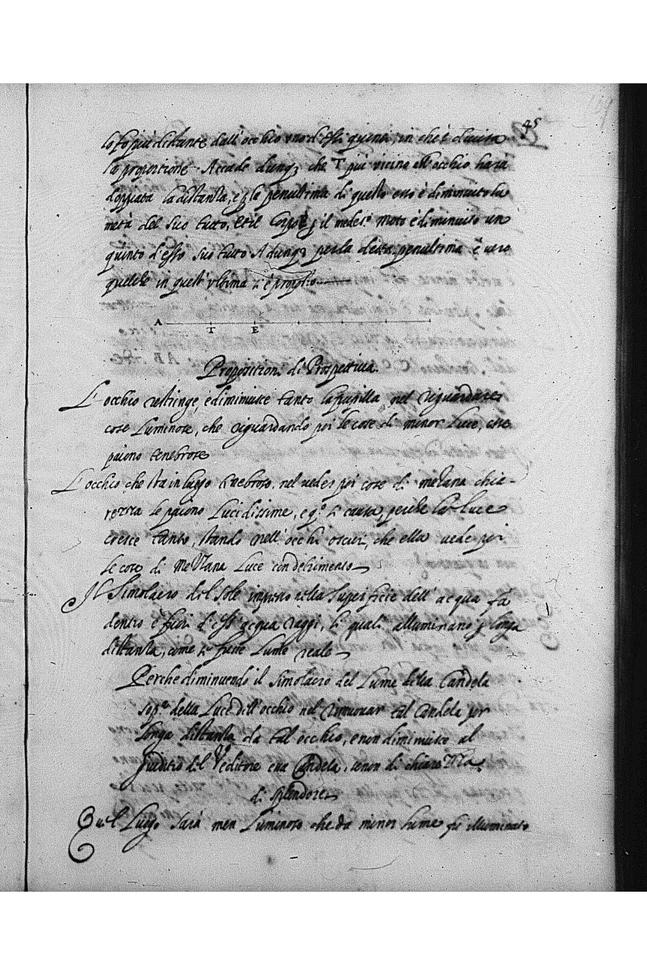 45
lo fo più distante dall'occhio uno d'essi quena, in che è divisa
la proportione. Accade dunq; che T più vicino all'occhio harà
doppiata la distanza, e p la penultima di questo esso è diminuito la
metà del suo tutto, et il corpo E, il medes.º moto è diminuito un
quinto d'esso suo tutto Adunq; per la detta penultima è vero
quello in quest'ultima si è proposto
A T E
Propositioni di Prospettiva.
L'occhio restringe, e diminuisce tanto la pupilla nel riguardare
cose luminose, che riguardando poi le cose di minor luce, esse
paiono tenebrose
L'occhio che sta in luogo tenebroso, nel veder poi cose di mezana chia-
rezza le paiono lucidissime, e q.º si causa perche la luce
cresce tanto, stando nell'occhi oscuri, che ella vede poi
le cose di mezzana luce con detrimento
Il Simolacro del Sole impresso nella superficie dell'acqua fa
dentro e fuori d'ess'acqua raggi, li quali alluminano p longa
distanza, come si fusse lume reale
Perche diminuendo il simolacro del lume della candela
sop.ª della luce dell'occhio nel rimuovar tal candela per
longa distanza da tal occhio, e non diminuisce al
giuditio del veditore essa candela, se non di chiarezza,
di splendore
Quel luogo sarà men luminoso che da minor lume fia illuminato